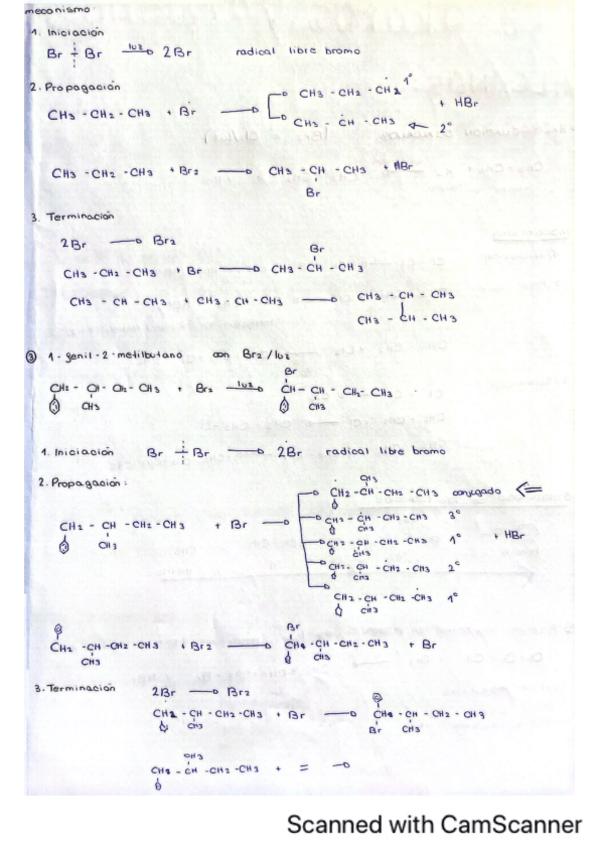 mecanismo:
1. Iniciación
Br ÷ Br —luz→ 2Br radical libre bromo
2. Propagación
CH3 - CH2 - CH2 1°
CH3 - CH2 - CH3 + Br → + HBr
CH3 - CH - CH3 ← 2°
CH3 - CH2 - CH3 + Br2 → CH3 - CH - CH3 + HBr
Br
3. Terminación
2Br → Br2
Br
CH3 - CH2 - CH3 + Br → CH3 - CH - CH3
CH3 - CH - CH3 + CH3 - CH - CH3 → CH3 - CH - CH3
CH3 - CH - CH3
③ 1-fenil-2-metilbutano con Br2/luz
Br
CH2 - CH - CH2 - CH3 + Br2 —luz→ CH - CH - CH2 - CH3
CH3 CH3
1. Iniciación Br ÷ Br → 2Br radical libre bromo
2. Propagación:
CH3
CH2 - CH - CH2 - CH3 conjugado ⇐
CH2 - CH - CH2 - CH3 3°
CH3
CH2 - CH - CH2 - CH3 + Br → CH2 - CH - CH2 - CH3 1° + HBr
CH3 CH3
CH2 - CH - CH2 - CH3 2°
CH3
CH2 - CH - CH2 - CH3 1°
CH3
Br
CH2 - CH - CH2 - CH3 + Br2 → CH - CH - CH2 - CH3 + Br
CH3 CH3
3. Terminación 2Br → Br2
CH2 - CH - CH2 - CH3 + Br → CH - CH - CH2 - CH3
CH3 Br CH3
CH3
CH2 - CH - CH2 - CH3 + = →
Scanned with CamScanner